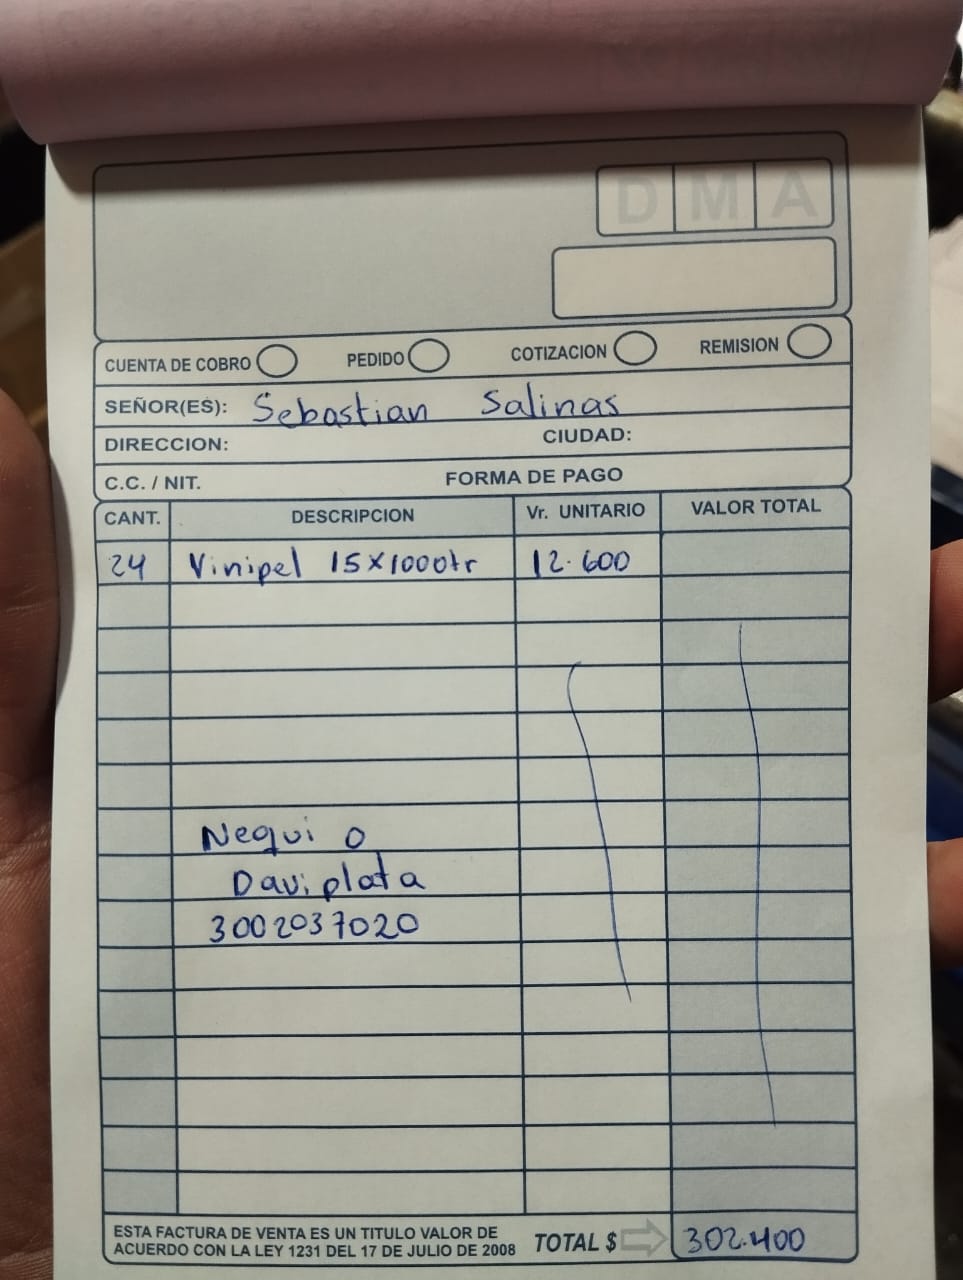 D M A
CUENTA DE COBRO PEDIDO COTIZACION REMISION
SEÑOR(ES): Sebastian Salinas
DIRECCION: CIUDAD:
C.C. / NIT. FORMA DE PAGO
CANT. DESCRIPCION Vr. UNITARIO VALOR TOTAL
24 Vinipel 15x1000tr 12.600
Nequi o
Daviplata
3002037020
ESTA FACTURA DE VENTA ES UN TITULO VALOR DE
ACUERDO CON LA LEY 1231 DEL 17 DE JULIO DE 2008 TOTAL $ 302.400